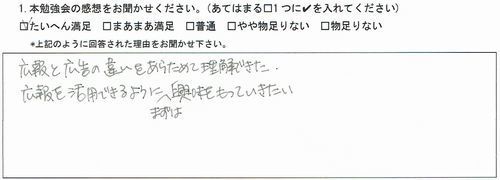 1. 本勉強会の感想をお聞かせください。(あてはまる□1つに✔を入れてください)
☑たいへん満足 □まあまあ満足 □普通 □やや物足りない □物足りない
*上記のように回答された理由をお聞かせ下さい。
広報と広告の違いをあらためて理解できた.
広報を活用できるように、まずは興味をもっていきたい